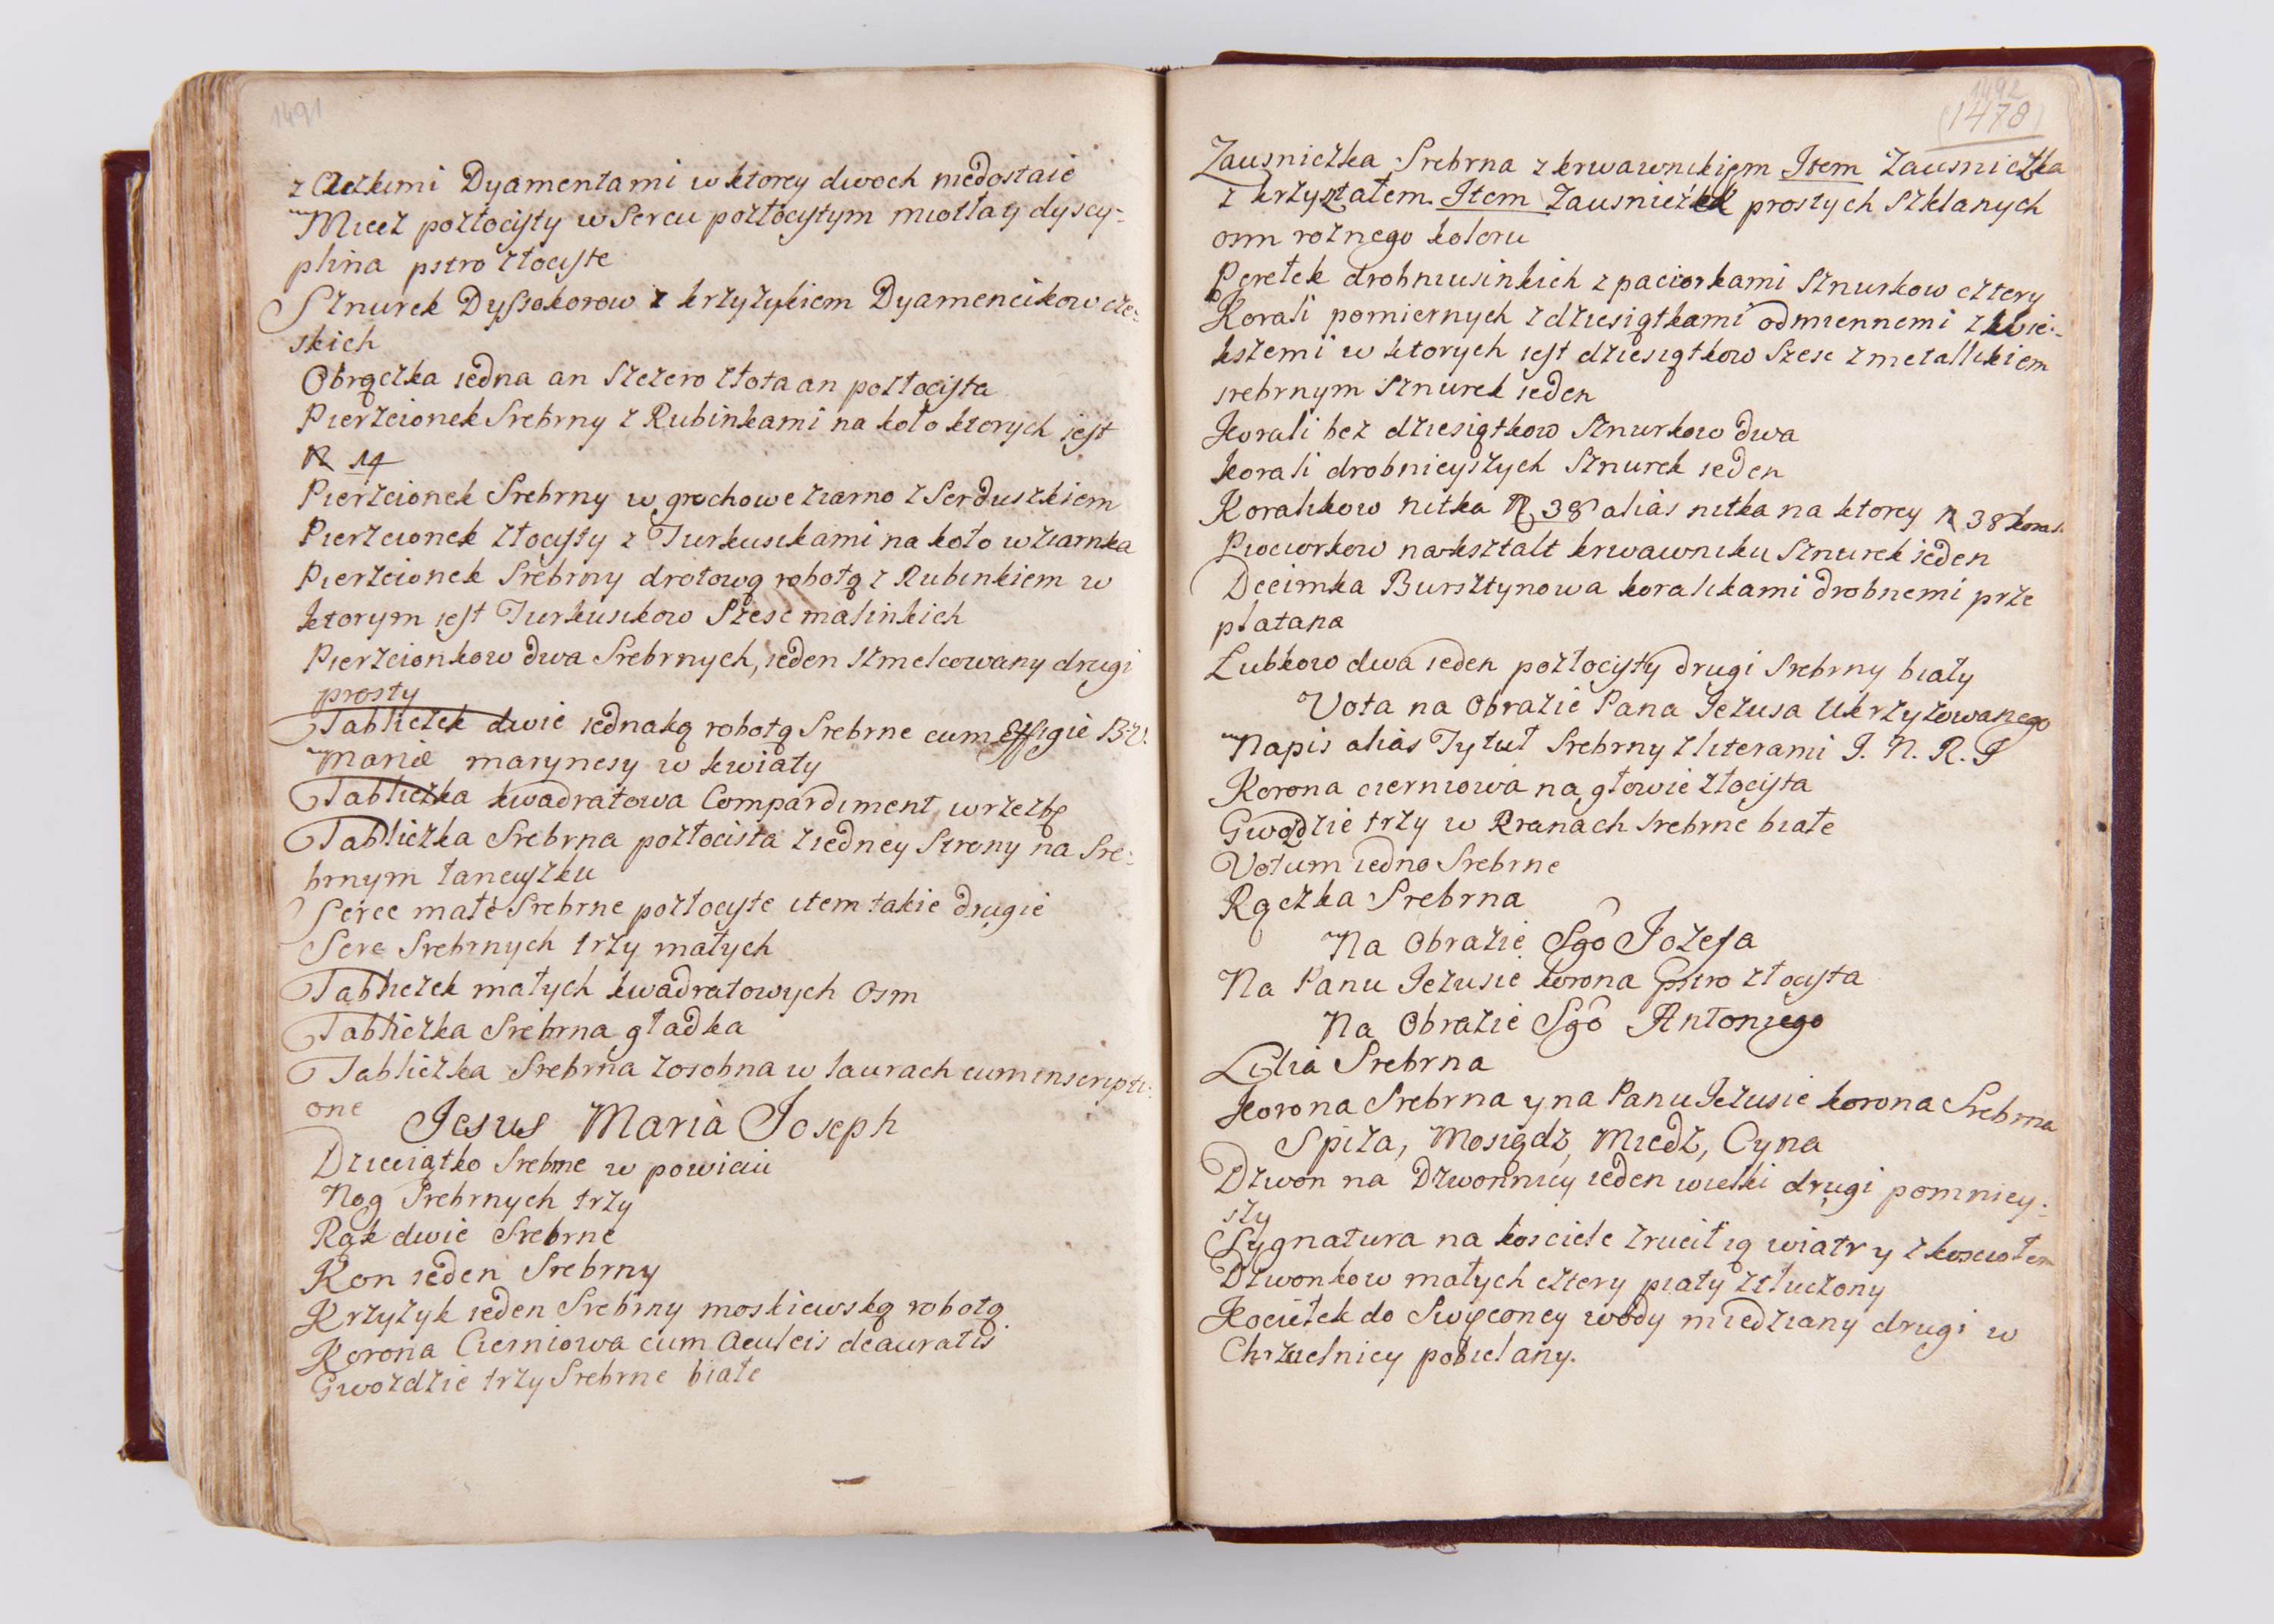 1491
z Czeskiemi Dyamentami w ktorey dwoch niedostaie
Miecz pozłocisty w Sercu pozłocistym miotła y dyscy-
plina pstro złociste
Sznurek Dyssokorow z krzyzykiem Dyamencikow cze-
skich
Obrączka iedna an szczero złota an pozłocista
Pierzcionek Srebrny z Rubinkami na koło ktorych iest
N 14
Pierzcionek Srebrny w grochowe ziarno z Serduszkiem
Pierzcionek złocisty z Turkusikami na koło w ziarnka
Pierzcionek Srebrny drotową robotą z Rubinkiem w
ktorym iest Turkusikow Szesc malinkich
Pierzcionkow dwa Srebrnych, ieden szmelcowany drugi
prosty
Tabliczek dwie iednaką robotą Srebrne cum Effigie B. V.
Mariæ marynesy w kwiaty
Tabliczka kwadratowa Compardiment w rzezbę
Tabliczka Srebrna pozłocista z iedney Strony na Sre-
brnym łancuszku
Serce małe Srebrne pozłocyste item takie drugie
Serc Srebrnych trzy małych
Tabliczek małych kwadratowych osm
Tabliczka Srebrna gładka
Tabliczka Srebrna zosobna w laurach cum inscripti-
one Jesus Maria Joseph
Dzieciątko Srebrne w powiciu
Nog Srebrnych trzy
Rąk dwie Srebrne
Kon ieden Srebrny
Krzyzyk ieden Srebrny moskiewską robotą
Korona Cierniowa cum Aculeis deauratis
Gwozdzie trzy Srebrne białe
1492
(1478)
Zausniczka Srebrna z krwawnikiem Item Zausniczka
z krzyształem. Item Zausniczek prostych Szklanych
osm roznego koloru
Perełek drobniusinkich z paciorkami Sznurkow cztery
Korali pomiernych z dziesiątkami odmiennemi z wie-
kszemi w ktorych iest dziesiątkow Szesc z metallikiem
srebrnym Sznurek ieden
Korali bez dziesiątkow Sznurkow dwa
Korali drobnieyszych Sznurek ieden
Koralikow nitka N 38 alias nitka na ktorey N 38 korali
Paciorkow na kształt krwawniku Sznurek ieden
Decimka Bursztynowa koralikami drobnemi prze
platana
Łubkow dwa ieden pozłocisty drugi Srebrny biały
Vota na Obrazie Pana Jezusa Ukrzyzowanego
Napis alias Tytuł Srebrny z literami J. N. R. J
Korona cierniowa na głowie złocista
Gwozdzie trzy w Rranach Srebrne białe
Votum iedno Srebrne
Rączka Srebrna
Na Obrazie Sgo Jozefa
Na Panu Jezusie korona pstro złocysta
Na Obrazie Sgo Antoniego
Lilia Srebrna
Korona Srebrna y na Panu Jezusie korona Srebrna
Spiza, Mosiądz, Miedz, Cyna
Dzwon na Dzwonnicy ieden wielki drugi pomniey-
szy
Sygnatura na kosciele zrucił ią wiatr y z kosciołem
Dzwonkow małych cztery piąty ztłuczony
Kociełek do Swięconey wody miedziany drugi w
Chrzcielnicy pobielany.